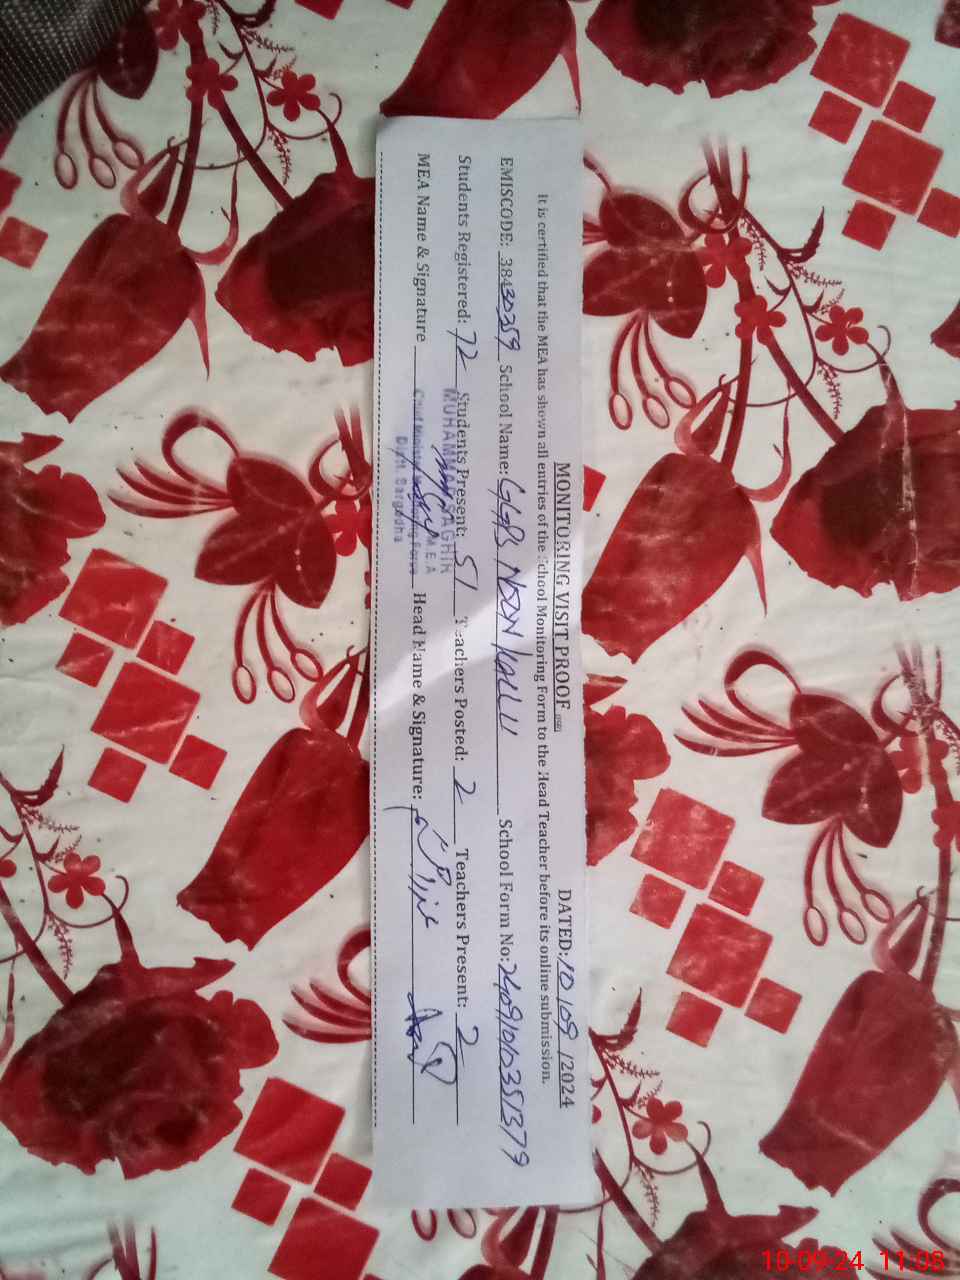 MONITORING VISIT PROOF DATED: 10/09/2024
It is certified that the MEA has shown all entries of the School Monitoring Form to the Head Teacher before its online submission.
EMISCODE: 38430359 School Name: GGPS NOON KALU School Form No: 24091010351379
Students Registered: 72 Students Present: 51 Teachers Posted: 2 Teachers Present: 2
MUHAMMAD SAGHIR
M.E.A
MEA Name & Signature Head Name & Signature:
Chief Minister Monitoring Force
Distt. Sargodha
10-09-24 11:08